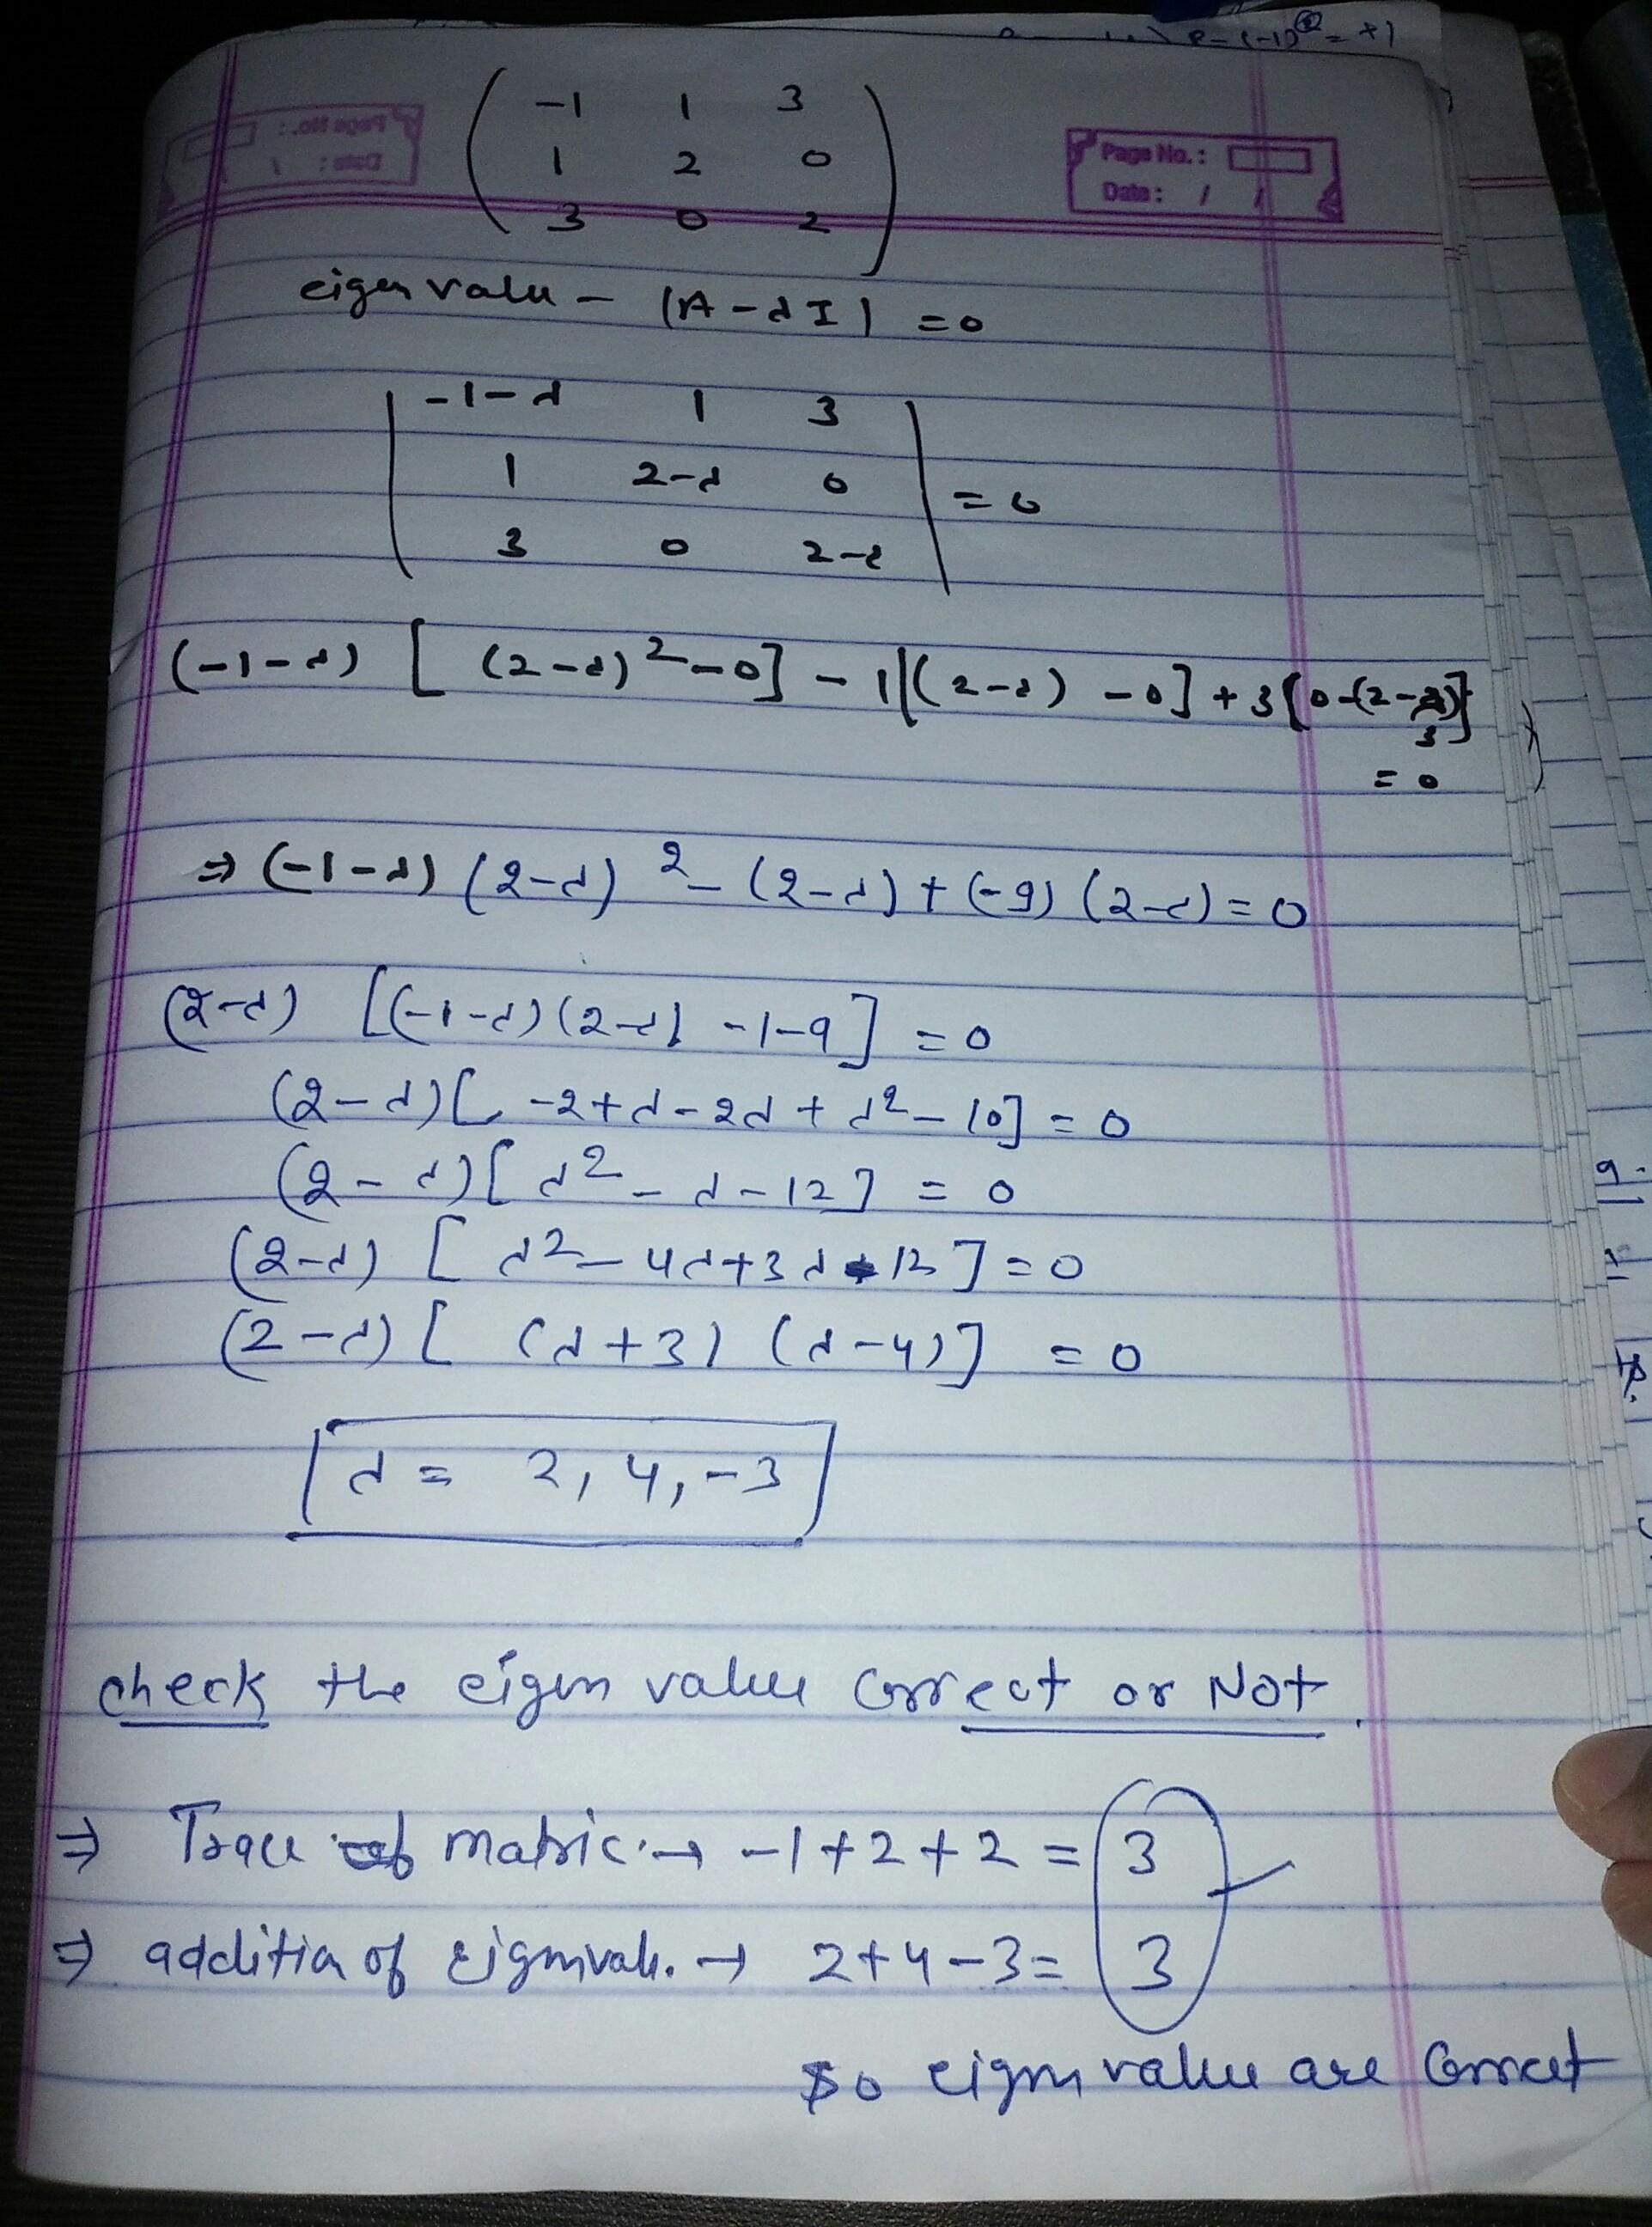 = (-1) = +1
-1 1 3
1 2 0
3 0 2
Page No.:
Date: / /
Page No.:
Date: / /
eigen value - |A - λI| = 0
-1-λ 1 3
1 2-λ 0 = 0
3 0 2-λ
(-1-λ) [ (2-λ)² - 0] - 1[(2-λ) - 0] + 3[0-(2-λ)3]
= 0
⇒ (-1-λ) (2-λ)² - (2-λ) + (-9) (2-λ) = 0
(2-λ) [(-1-λ)(2-λ) - 1-9] = 0
(2-λ)[ -2+λ-2λ + λ² - 10] = 0
(2-λ)[ λ² - λ - 12] = 0
(2-λ) [ λ² - 4λ+3λ - 12 ] = 0
(2-λ) [ (λ+3) (λ-4)] = 0
λ = 2, 4, -3
check the eigen value correct or Not.
⇒ Trace of matric. → -1+2+2 = 3
⇒ addition of Eigenvalu. → 2+4-3 = 3
So eigen value are Correct